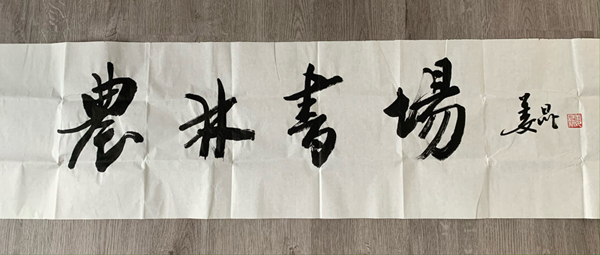 農林書場
姜昆